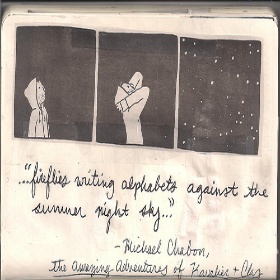 "...fireflies writing alphabets against the
summer night sky..."
- Michael Chabon,
the amazing Adventures of Kavalier + Clay